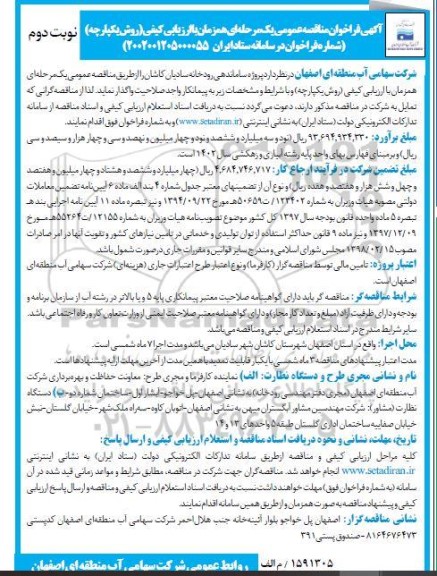 آگهی فراخوان مناقصه عمومی یک مرحله‌ای همزمان با ارزیابی کیفی (روش یکپارچه)
(شماره فراخوان در سامانه ستاد ایران ۲۰۰۲۰۰۱۲۰۵۰۰۰۰۵۵)
نوبت دوم
شرکت سهامی آب منطقه‌ای اصفهان در نظر دارد پروژه ساماندهی رودخانه سادیان کاشان را از طریق مناقصه عمومی یک مرحله‌ای
همزمان با ارزیابی کیفی (روش یکپارچه) و با شرایط و مشخصات زیر به پیمانکار واجد صلاحیت واگذار نماید. لذا از مناقصه‌گرانی که
تمایل به شرکت در مناقصه مذکور دارند، دعوت می‌گردد نسبت به دریافت اسناد استعلام ارزیابی کیفی و اسناد مناقصه از سامانه
تدارکات الکترونیکی دولت (ستاد ایران) به نشانی اینترنتی (www.setadiran.ir) و به شماره فراخوان فوق اقدام نمایند.
مبلغ برآورد: ۹۳,۶۹۴,۹۳۴,۳۳۰ ریال (نود و سه میلیارد و ششصد و نود و چهار میلیون و نهصد و سی و چهار هزار و سیصد و سی
ریال) و بر مبنای فهارس بهای واحد پایه رشته آبیاری و زهکشی سال ۱۴۰۲ است.
مبلغ تضمین شرکت در فرآیند ارجاع کار: ۴,۶۸۴,۷۴۶,۷۱۷ ریال (چهار میلیارد و ششصد و هشتاد و چهار میلیون و هفتصد
و چهل و شش هزار و هفتصد و هفده ریال) و نوع آن از تضمینهای معتبر جدول شماره ۴ بند الف ماده ۶ آیین‌نامه تضمین معاملات
دولتی مصوبه هیات وزیران به شماره ۱۲۳۴۰۲/ت۵۰۶۵۹هـ مورخ ۱۳۹۴/۰۹/۲۲ و نیز تبصره ماده ۱۱ آیین نامه اجرایی بند هـ
تبصره ۵ ماده واحده قانون بودجه سال ۱۳۹۷ کل کشور موضوع تصویب‌نامه هیات وزیران به شماره ۱۲۱۵۵/ت۵۵۲۶۴هـ مورخ
۱۳۹۷/۱۲/۰۹ و نیز ماده ۹ قانون حداکثر استفاده از توان تولیدی و خدماتی در تامین نیازهای کشور و تقویت آنها در امر صادرات
مصوب ۱۳۹۸/۰۲/۱۵ مجلس شورای اسلامی و مندرج سایر قوانین و مقررات جاری در صورت شمول باشد.
اعتبار پروژه: تامین مالی توسط مناقصه‌گزار (کارفرما) و نوع اعتبار طرح اعتبارات جاری (هزینه‌ای) شرکت سهامی آب منطقه‌ای
اصفهان است.
شرایط مناقصه‌گر: مناقصه گر باید دارای گواهینامه صلاحیت معتبر پیمانکاری پایه ۵ و یا بالاتر در رشته آب از سازمان برنامه و
بودجه و دارای ظرفیت آزاد (مبلغ و تعداد کار مجاز) و دارای گواهینامه معتبر صلاحیت ایمنی از وزارت تعاون کار و رفاه اجتماعی باشد.
سایر شرایط مندرج در اسناد استعلام ارزیابی کیفی و مناقصه می‌باشد.
محل اجرا: واقع در استان اصفهان شهرستان کاشان شهر سادیان می‌باشد و مدت اجرا ۷ ماه شمسی است.
مدت اعتبار پیشنهادهای مناقصه ۳ ماه شمسی با یکبار قابلیت تمدید با همین مدت از آخرین مهلت ارائه پیشنهادها است.
نام و نشانی مجری طرح و دستگاه نظارت: الف) نماینده کارفرما و مجری طرح: معاونت حفاظت و بهره‌برداری شرکت
آب منطقه‌ای اصفهان (مجری: دفتر مهندسی رودخانه) به نشانی اصفهان-پل خواجو-ابشار اول-ساختمان شماره (دو) ب) دستگاه
نظارت (مشاور): شرکت مهندسین مشاور آبگستران میهن به نشانی اصفهان-خوبان کاوه-سه‌راه ملک‌شهر-خیابان گلستان-نبش
خیابان صفاییه ساختمان اداری گلستان طبقه ۵ واحدهای ۱۳ و ۱۴
تاریخ، مهلت، نشانی و نحوه دریافت اسناد مناقصه و استعلام ارزیابی کیفی و ارسال پاسخ:
کلیه مراحل ارزیابی کیفی و مناقصه ازطریق سامانه تدارکات الکترونیکی دولت (ستاد ایران) به نشانی اینترنتی
www.setadiran.ir انجام خواهد شد. مناقصه‌گران جهت شرکت در مناقصه، مطابق شرایط و مواعد زمانی قید شده در آن
سامانه (به شماره فراخوان فوق) مهلت خواهند داشت نسبت به دریافت اسناد استعلام ارزیابی کیفی و مناقصه و ارسال پاسخ ارزیابی
کیفی و پیشنهاد مناقصه به صورت همزمان و از طریق همین سامانه اقدام نمایند.
نشانی مناقصه‌گزار: اصفهان پل خواجو بلوار آئینه‌خانه جنب هلال احمر شرکت سهامی آب منطقه‌ای اصفهان کدپستی
۸۱۶۴۶۷۶۴۷۳ - صندوق پستی ۳۹۱
۱۵۹۱۳۰۵ / م الف
روابط عمومی شرکت سهامی آب منطقه‌ای اصفهان